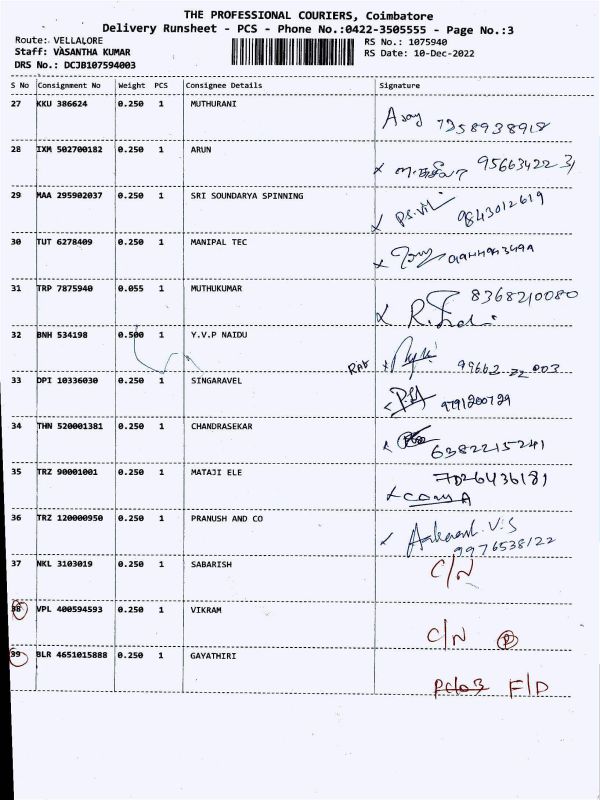 THE PROFESSIONAL COURIERS, Coimbatore
Delivery Runsheet - PCS - Phone No.:0422-3505555 - Page No.:3
Route: VELLALORE RS No.: 1075940
Staff: VASANTHA KUMAR RS Date: 10-Dec-2022
DRS No.: DCJB107594003
S No Consignment No Weight PCS Consignee Details Signature
27 KKU 386624 0.250 1 MUTHURANI
7358938918
28 IXM 502700182 0.250 1 ARUN
29 MAA 295902037 0.250 1 SRI SOUNDARYA SPINNING
9843012619
30 TUT 6278409 0.250 1 MANIPAL TEC
31 TRP 7875940 0.055 1 MUTHUKUMAR
8368210080
32 BNH 534198 0.500 1 Y.V.P NAIDU
99662 22 003
33 DPI 10336030 0.250 1 SINGARAVEL
9791200729
34 THN 520001381 0.250 1 CHANDRASEKAR
6382215241
35 TRZ 90001001 0.250 1 MATAJI ELE
7026436181
36 TRZ 120000950 0.250 1 PRANUSH AND CO
9976538122
37 NKL 3103019 0.250 1 SABARISH
C/N
38 VPL 400594593 0.250 1 VIKRAM
C/N P
39 BLR 4651015888 0.250 1 GAYATHIRI
F/D